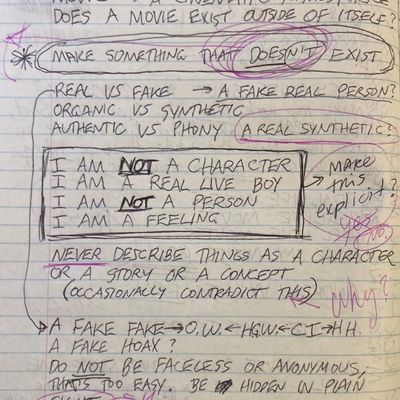 DOES A MOVIE EXIST OUTSIDE OF ITSELF?
* MAKE SOMETHING THAT DOESN'T EXIST
REAL VS FAKE → A FAKE REAL PERSON?
ORGANIC VS SYNTHETIC
AUTHENTIC VS PHONY A REAL SYNTHETIC?
I AM NOT A CHARACTER
I AM A REAL LIVE BOY
I AM NOT A PERSON
I AM A FEELING
→ MAKE
this
explicit?
yes
no,
NEVER DESCRIBE THINGS AS A CHARACTER
OR A STORY OR A CONCEPT
(OCCASIONALLY CONTRADICT THIS)
why?
A FAKE FAKE → O.W. ← H.G.W. ← C I → H H.
A FAKE HOAX?
DO NOT BE FACELESS OR ANONYMOUS,
THAT'S TOO EASY. BE HIDDEN IN PLAIN